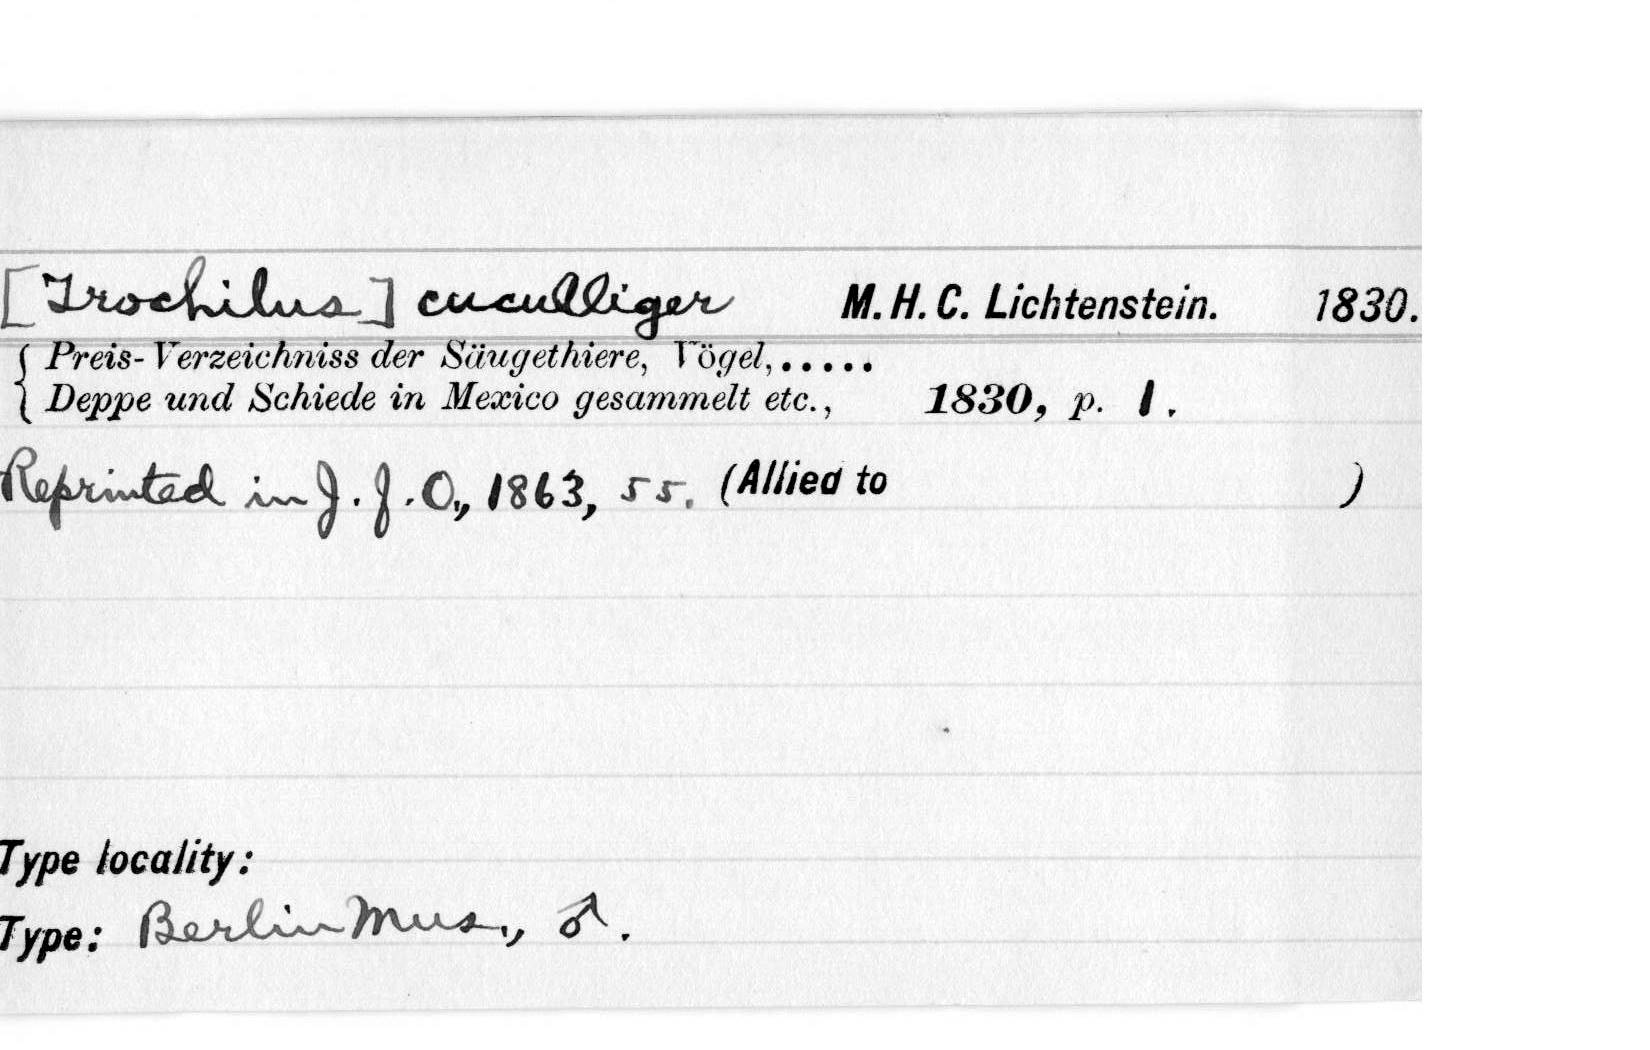 [Trochilus] cuculliger M. H. C. Lichtenstein. 1830.
{ Preis-Verzeichniss der Säugethiere, Vögel, .....
{ Deppe und Schiede in Mexico gesammelt etc., 1830, p. 1.
Reprinted in J. f. O., 1863, 55. (Allied to )
Type locality:
Type: Berlin Mus., ♂.